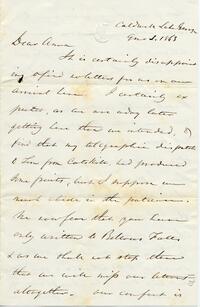 Caldwell Lake George
June 5. 1863
Dear Anna
It is certainly disappoin
ting to find no letters for us on our
arrival here I certainly ex
pected, as we are a day later
getting here than we intended, to
find that my telegraphic dispatch
to from Catskill had produced
some fruits, but I suppose we
must abide in the patience.
We now fear that you have
only written to Bellows Falls
& as we shall not stop there
that we will miss our letters
altogether. Our comfort is